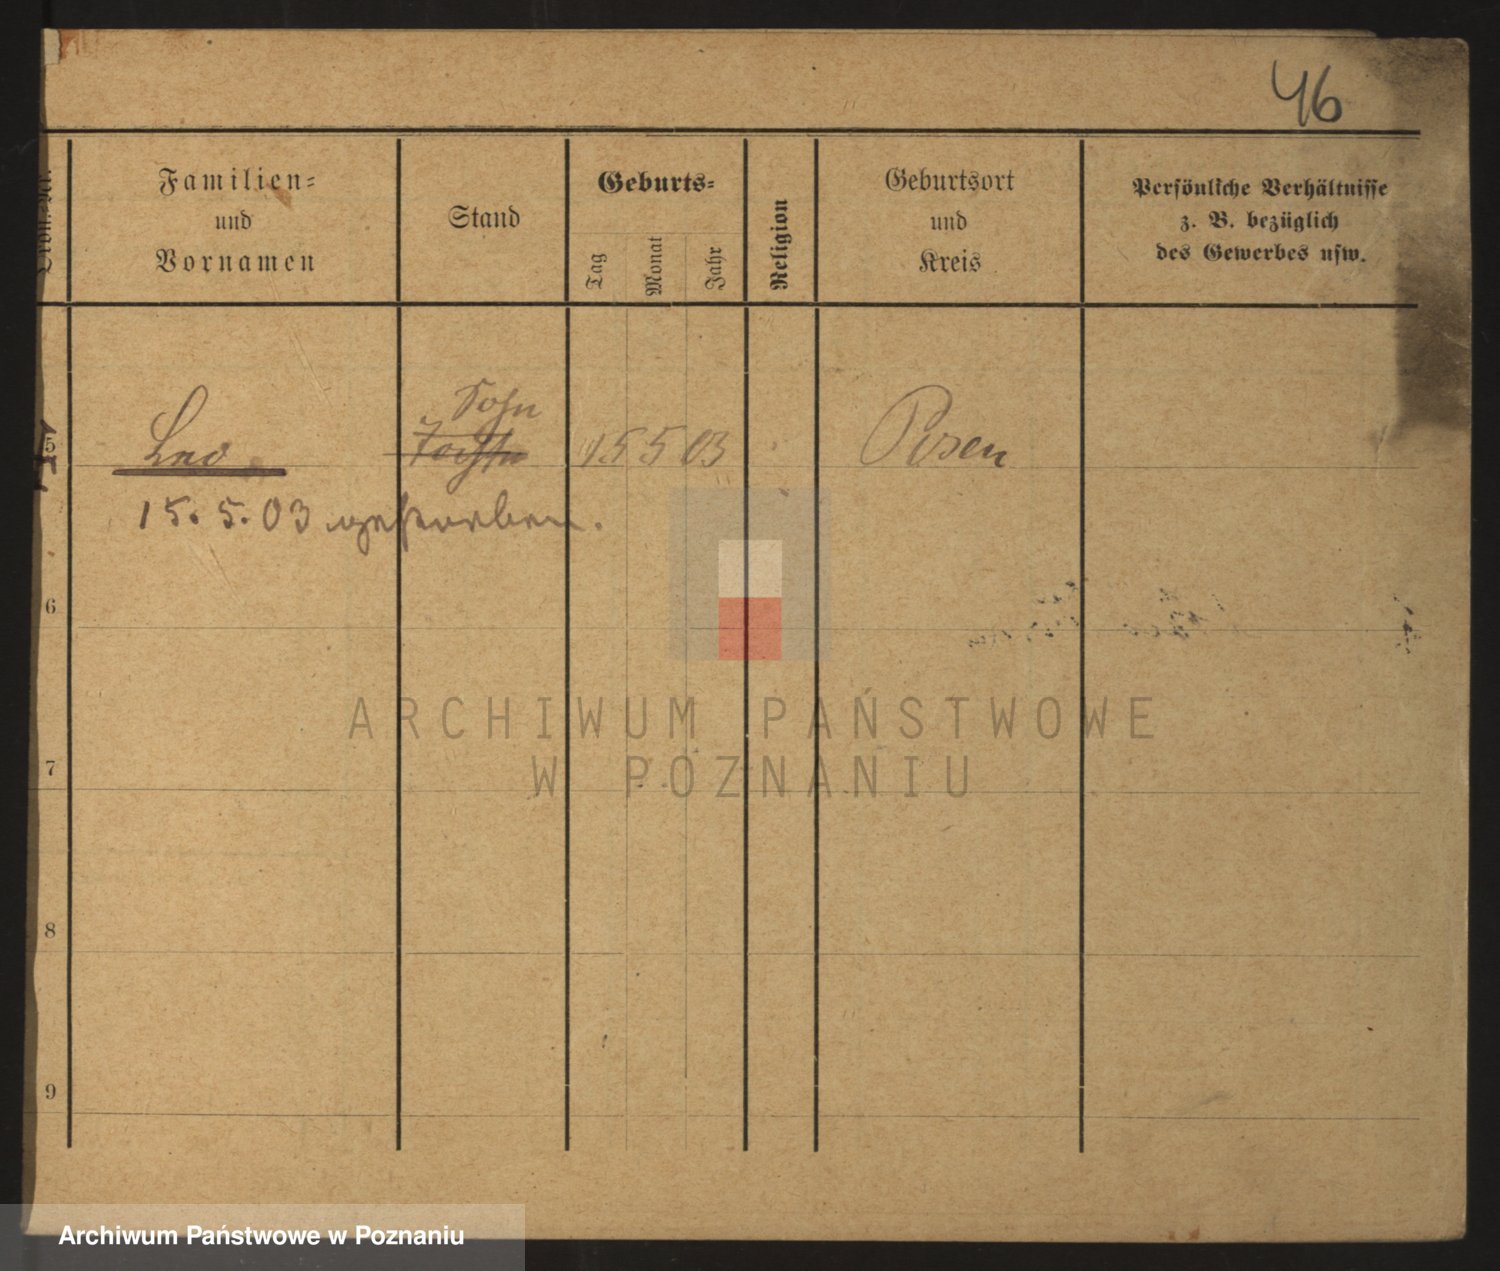 46
Ordn.-Nr.
Familien-
und
Vornamen
Stand
Geburts-
Tag
Monat
Jahr
Religion
Geburtsort
und
Kreis
Persönliche Verhältnisse
z. B. bezüglich
des Gewerbes usw.
Sohn
5 Leo Tochter 15 5 03 Posen
15. 5. 03 gestorben.
6
ARCHIWUM PAŃSTWOWE
W POZNANIU
7
8
9
Archiwum Państwowe w Poznaniu